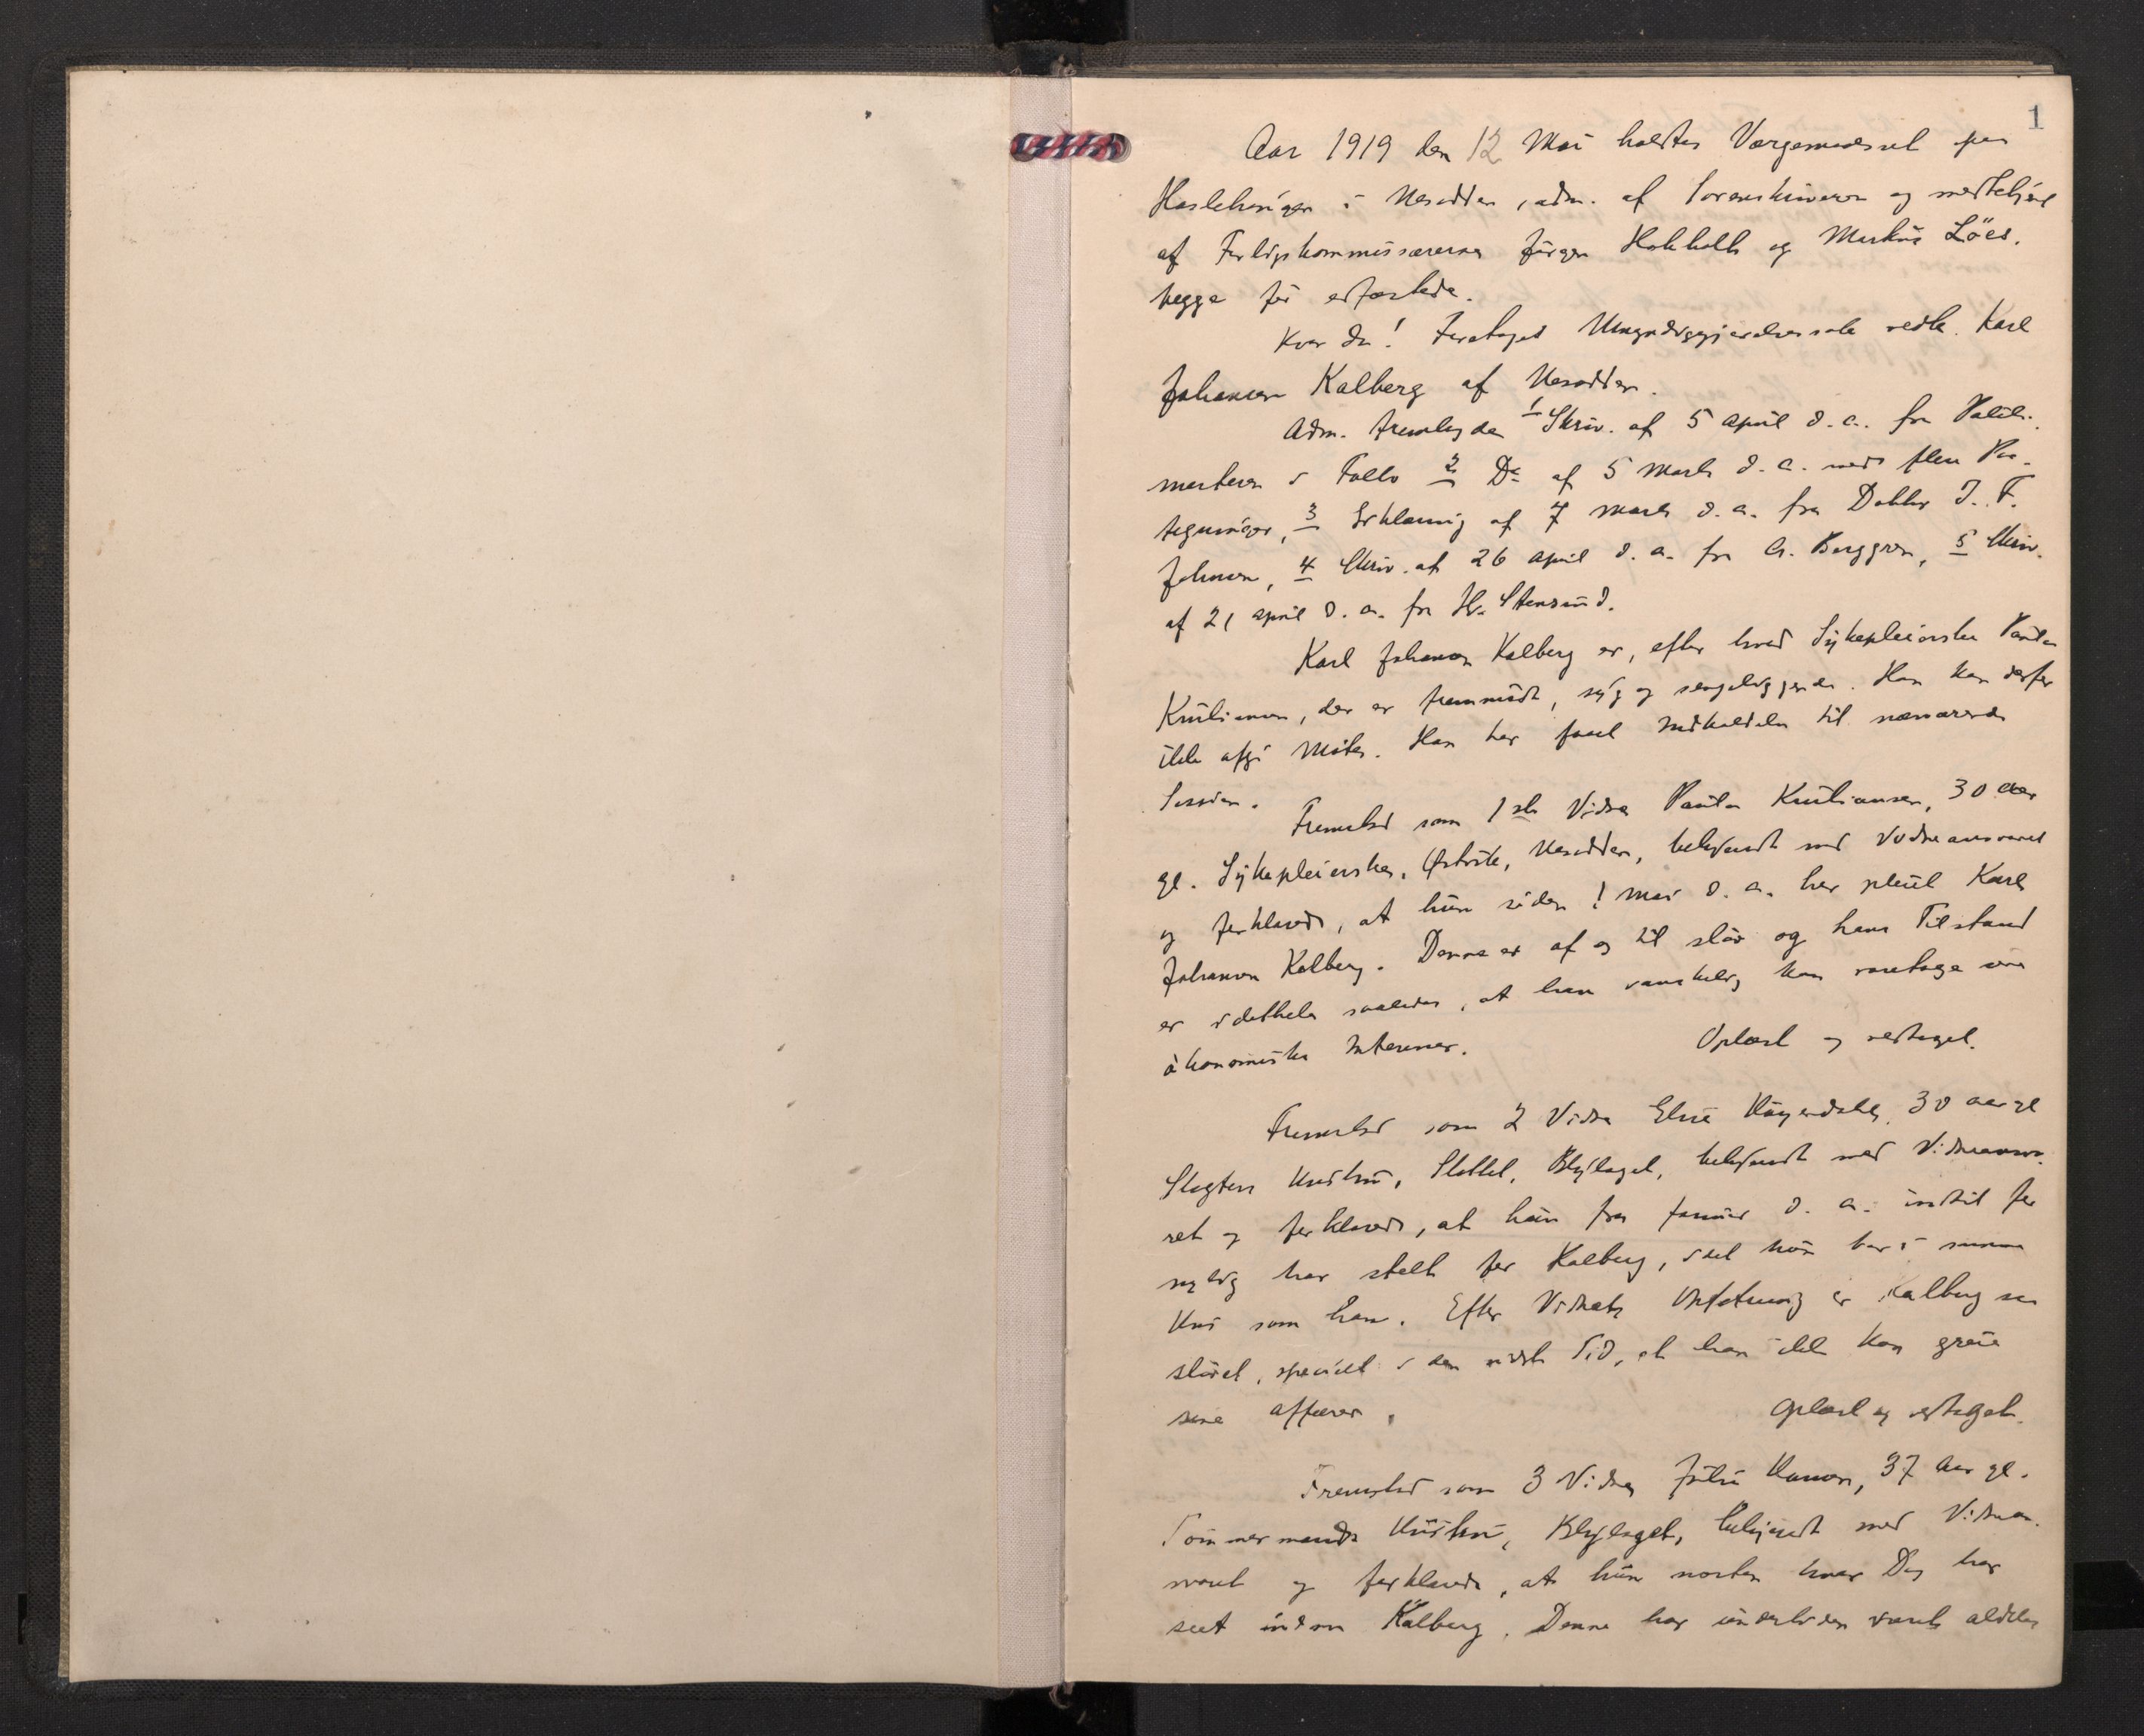 1
Aar 1919 den 12 Mai holdtes Værgemaalsret paa
Haslehaugen i Nesodden, adm. af Sorenskriveren og medbetjent
af Forligskommissærerne Jørgen Hokholt og Markus Löes.
begge før edfæstede.
Hvor da! Foretoges Umyndiggjørelsessak vedk. Karl
Johansen Kalberg af Nesodden.
Adm. fremlagde 1 Skriv. af 5 april d. a. fra Politi-
mesteren i Follo 2 Do af 5 Marts d. a. med flere Paa-
tegninger, 3 Erklæring af 7 Marts d. a. fra Doktor J. F.
Johnsen, 4 Skriv. af 26 april d. a. fra A. Berggren, 5 Skriv.
af 21 april d. a. fra Hr. Stensrud.
Karl Johansen Kalberg er, efter hvad Sykepleierske Paula
Kristiansen, der er fremmødt, syg og sengeliggende. Han kan derfor
ikke afgi Møte. Han har faaet Indkaldelse til nærværende
Session.
Fremstod som 1ste Vidne Paula Kristiansen, 30 aar
gl. Sykepleierske, Nesodden, bekjendt med Vidneansvaret
og forklarede, at hun siden 1 Mai d. a. har pleiet Karl
Johansen Kalberg. Denne er af og til sløv og hans Tilstand
er i det hele saaledes, at han vanskelig kan varetage sine
økonomiske Interesser. Oplæst og vedtaget.
Fremstod som 2 Vidne Elise 30 aar gl
Slagters Hustru, Slottet, Blylaget, bekjendt med Vidneansva-
ret og forklarede, at hun fra Januar d. a. indtil for
nylig har stelt for Kalberg, idet hun bor i samme
Hus som han. Efter Vidnets Opfatning er Kalberg saa
sløvet, specielt i den sidste Tid, at han ikke kan greie
sine affærer. Oplæst og vedtaget.
Fremstod som 3 Vidne Julie Hansen, 37 Aar gl.
Tømmermands Hustru, Blylaget, bekjendt med Vidnean-
svaret og forklarede, at hun næsten hver Dag har
seet indom Kalberg. Denne har undertiden været aldeles